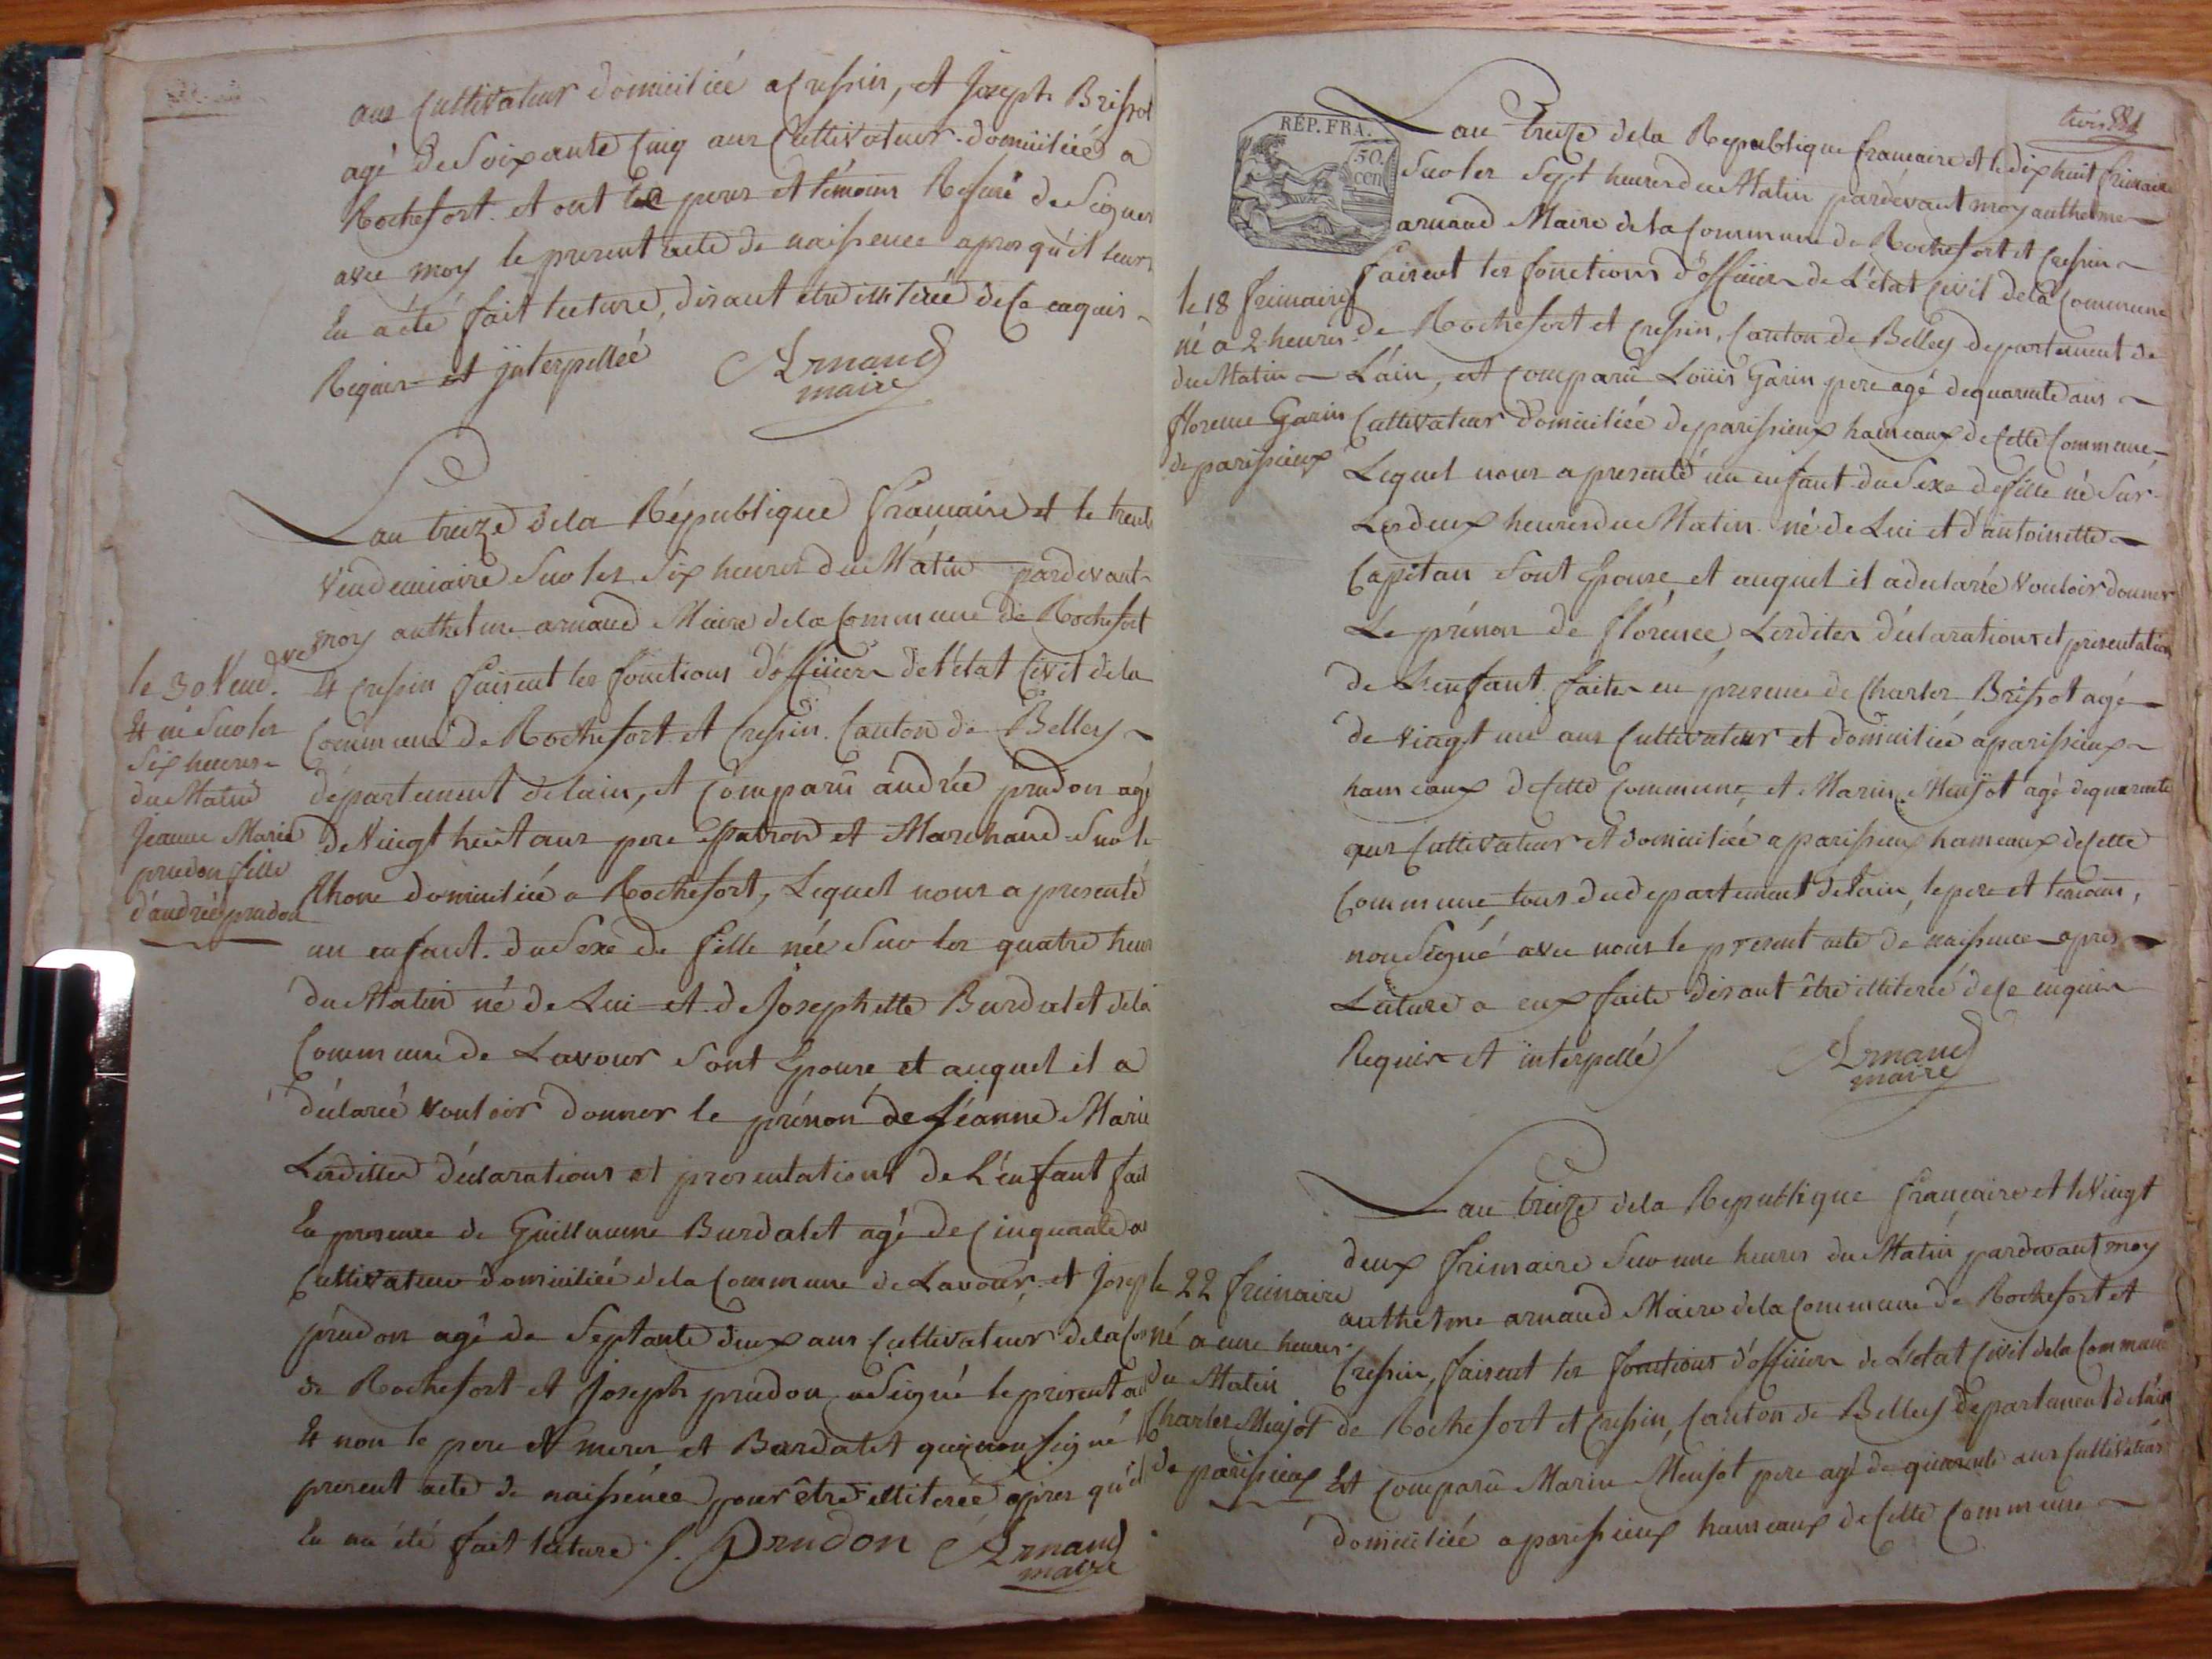 ans Cultivateur domiciliée a Cressin, et Joseph Brissot
agé de Soixante Cinq ans Cultivateur domiciliée a
Rochefort. et ont les peres et témoins Refusé de Signer
avec moy le present acte de naissence apres qu'il leurs
En a été fait lecture, disant être illiterée de ce enquis
Requis et jnterpellée
Arnaud
maire
L'an treize de la République francaise et le trente
Vendemiaire Sur les Six heures du Matin pardevant
moy anthelme arnaud Maire de la Commune de Rochefort
Et Cressin faisent les fonctions d'officier de l'état Civil de la
Commune de Rochefort et Cressin. Canton de Belley
département de lain, et Comparu andrée prudon agé
de Vingt huit ans pere patron et Marchand Sur le
Rhone domiciliée a Rochefort, Lequel nous a presenté
un enfant. du Sexe de fille née Sur les quatre heur
du Matin né de Lui et de Josephette Burdalet de la
Commune de Lavour Sont Epouse et auquel il a
déclarée vouloir donner le prénon de Jéanne Marie
Lesdittes déclarations et presentations de L'énfant fait
En presence de Guillaume Burdalet agé de Cinquante a
Cultivateur domiciliée de la Commune de Lavour, et Josep
prudon agé de Septante deux ans Cultivateur de la Co
de Rochefort et Joseph prudon a Signé le present ac
Et non le pere et meres et Burdalet qui non Signé
present acte de naissence pour être illiterée apres qu'il
En na été fait lecture J. Prudon Arnaud
maire
le 30 Vend.re
Et né Sur les
Six heures
du Matin
Jeanne Marie
prudon fille
d'andrée prudon
REP. FRA.
50.
cen
L'an treize de la Republique francaise et le dix huit frimaire
Sur les Sept heures du Matin pardevant moy anthelme
arnaud Maire de la Commune de Rochefort et Cressin
faisent les fonctions d'officier de L'état Civil de la Commune
de Rochefort et Cressin, Canton de Belley departement de
L'ain, et Comparu Loüis Garin pere agé de quarente ans
Cultivateur domiciliée de parissieux hameaux de Cette Commune
Lequel nous a presenté un enfant du Sexe de fille né Sur
Les deux heures du Matin né de Lui et d'antoinette
Capitan Sont Epouse, et auquel il a declarée Vouloir donner
Le prénon de florence, Lesdites déclarations et presentation
de L'enfant. faites en presence de Charles Brissot agé
de vingt un ans Cultivateur et domiciliée a parissieux
hameaux de Cette Commune, et Marin Meujot agé de quarente
ans Cultivateur et domiciliée a parissieux hameaux de Cette
Commune tous du departement de Lain, le pere et temoins,
non Signé avec nous le present acte de naissence apres
Lecture a eux faite disant être illiterée de ce enquis
Requis et interpellé
Arnaud
maire
le 18 frimaire
né a 2 heures
du Matin
florence Garin
de parissieux
L'an treize de la Republique francaise et le Vingt
deux frimaire Sur une heures du Matin pardevant moy
anthelme arnaud Maire de la Commune de Rochefort et
Cressin, faisent les fonctions d'officier de L'état Civil de la Commune
de Rochefort et Cressin, Canton de Belley departement de lain
Et Comparu Marin Meujot pere agé de quarente ans Cultivateur
domiciliée a parissieux hameaux de Cette Commune
le 22 frimaire
né a une heures
du Matin
Charles Meujot
de parissieux